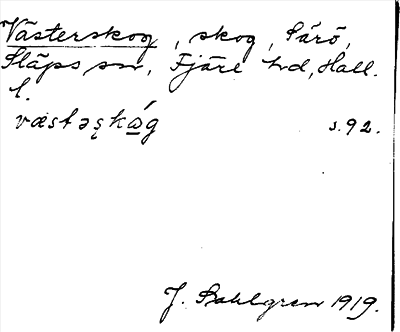 Västerskog, skog, Särö,
Släps sn, Fjäre hd, Hall.
l.
væstəʂkɷ́g s. 92.
J. Sahlgren 1919.